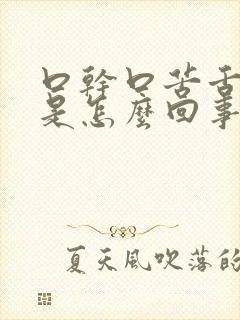 口幹口苦舌
是怎麼回事
夏天風吹落的